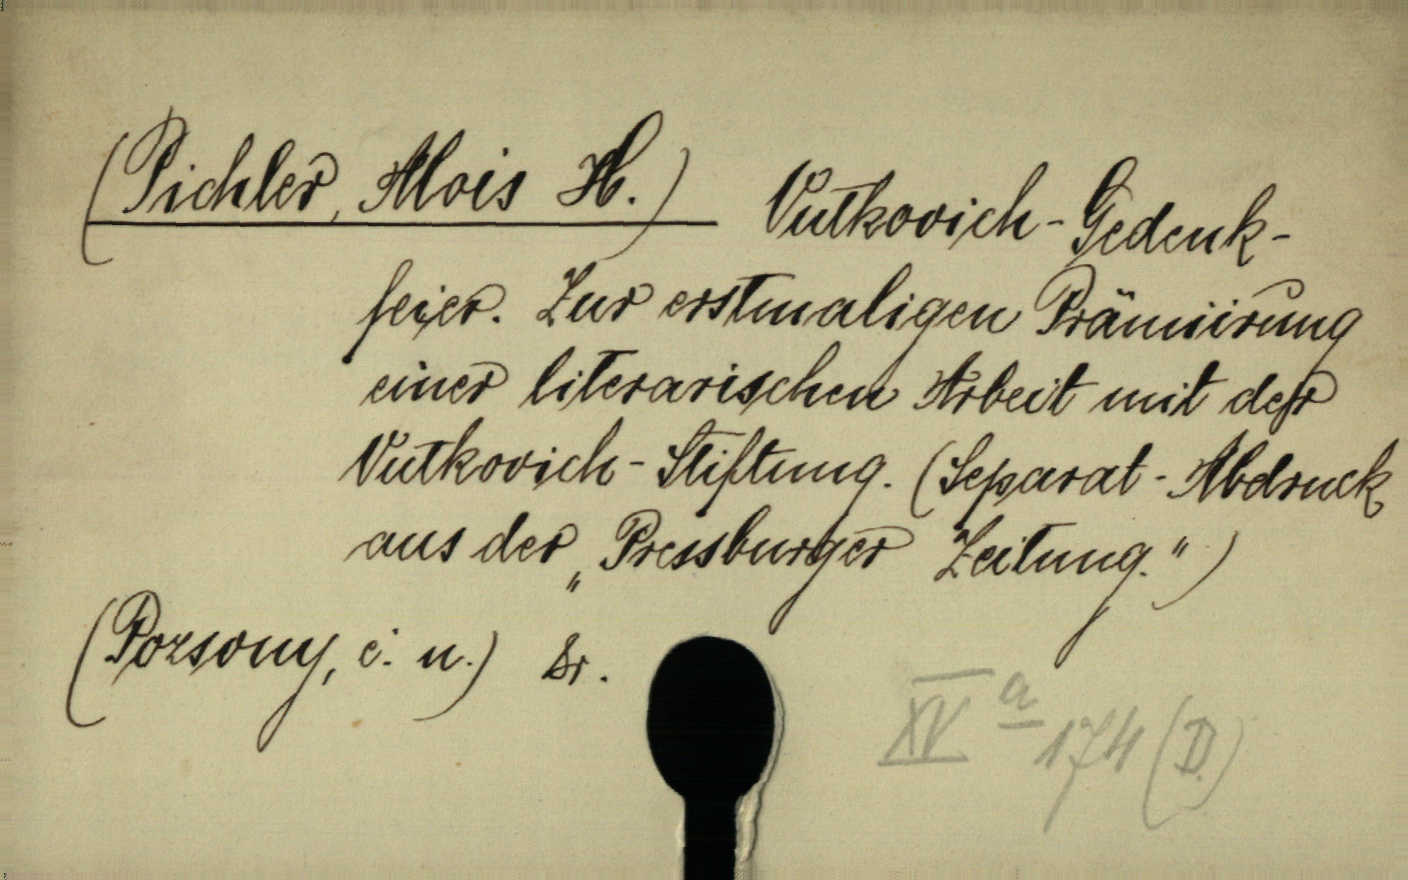 (Pichler, Alois H.) Vutkovich-Gedenk-
feier. Zur erstmaligen Prämiirung
einer literarischen Arbeit mit der
Vutkovich-Stiftung. (Separat-Abdruck
aus der „Pressburger Zeitung.")
(Pozsony, é. n.) 8r.
XV a 174 (D.)